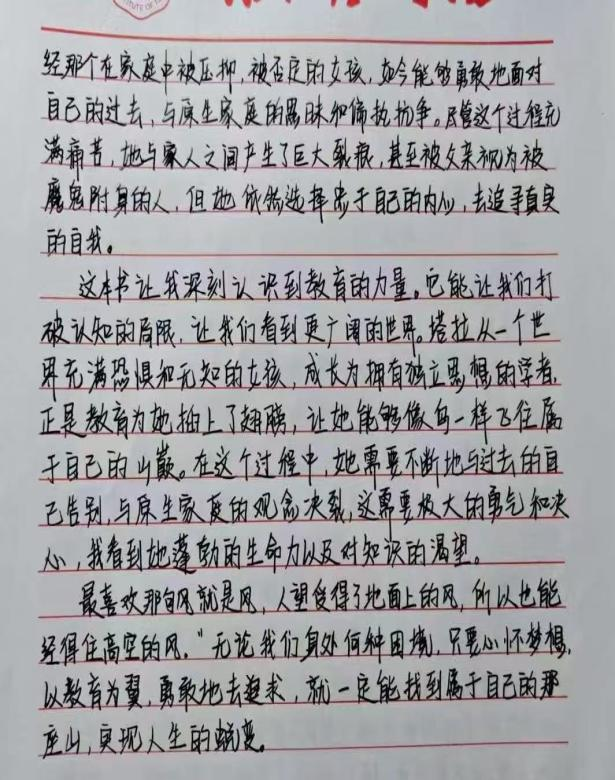 经那个在家庭中被压抑,被否定的女孩,如今能够勇敢地面对
自己的过去,与原生家庭的愚昧和偏执抗争。尽管这个过程充
满痛苦,她与家人之间产生了巨大裂痕,甚至被父亲视为被
魔鬼附身的人,但她依然选择忠于自己的内心,去追寻真实
的自我。
这本书让我深刻认识到教育的力量。它能让我们打
破认知的局限,让我们看到更广阔的世界。塔拉从一个世
界充满恐惧和无知的女孩,成长为拥有独立思想的学者,
正是教育为她插上了翅膀,让她能够像鸟一样飞往属
于自己的山巅。在这个过程中,她需要不断地与过去的自
己告别,与原生家庭的观念决裂,这需要极大的勇气和决
心,我看到她蓬勃的生命力以及对知识的渴望。
最喜欢那句风就是风,人望受得了地面上的风,所以也能
经得住高空的风。"无论我们身处何种困境,只要心怀梦想,
以教育为翼,勇敢地去追求,就一定能找到属于自己的那
座山,实现人生的蜕变。